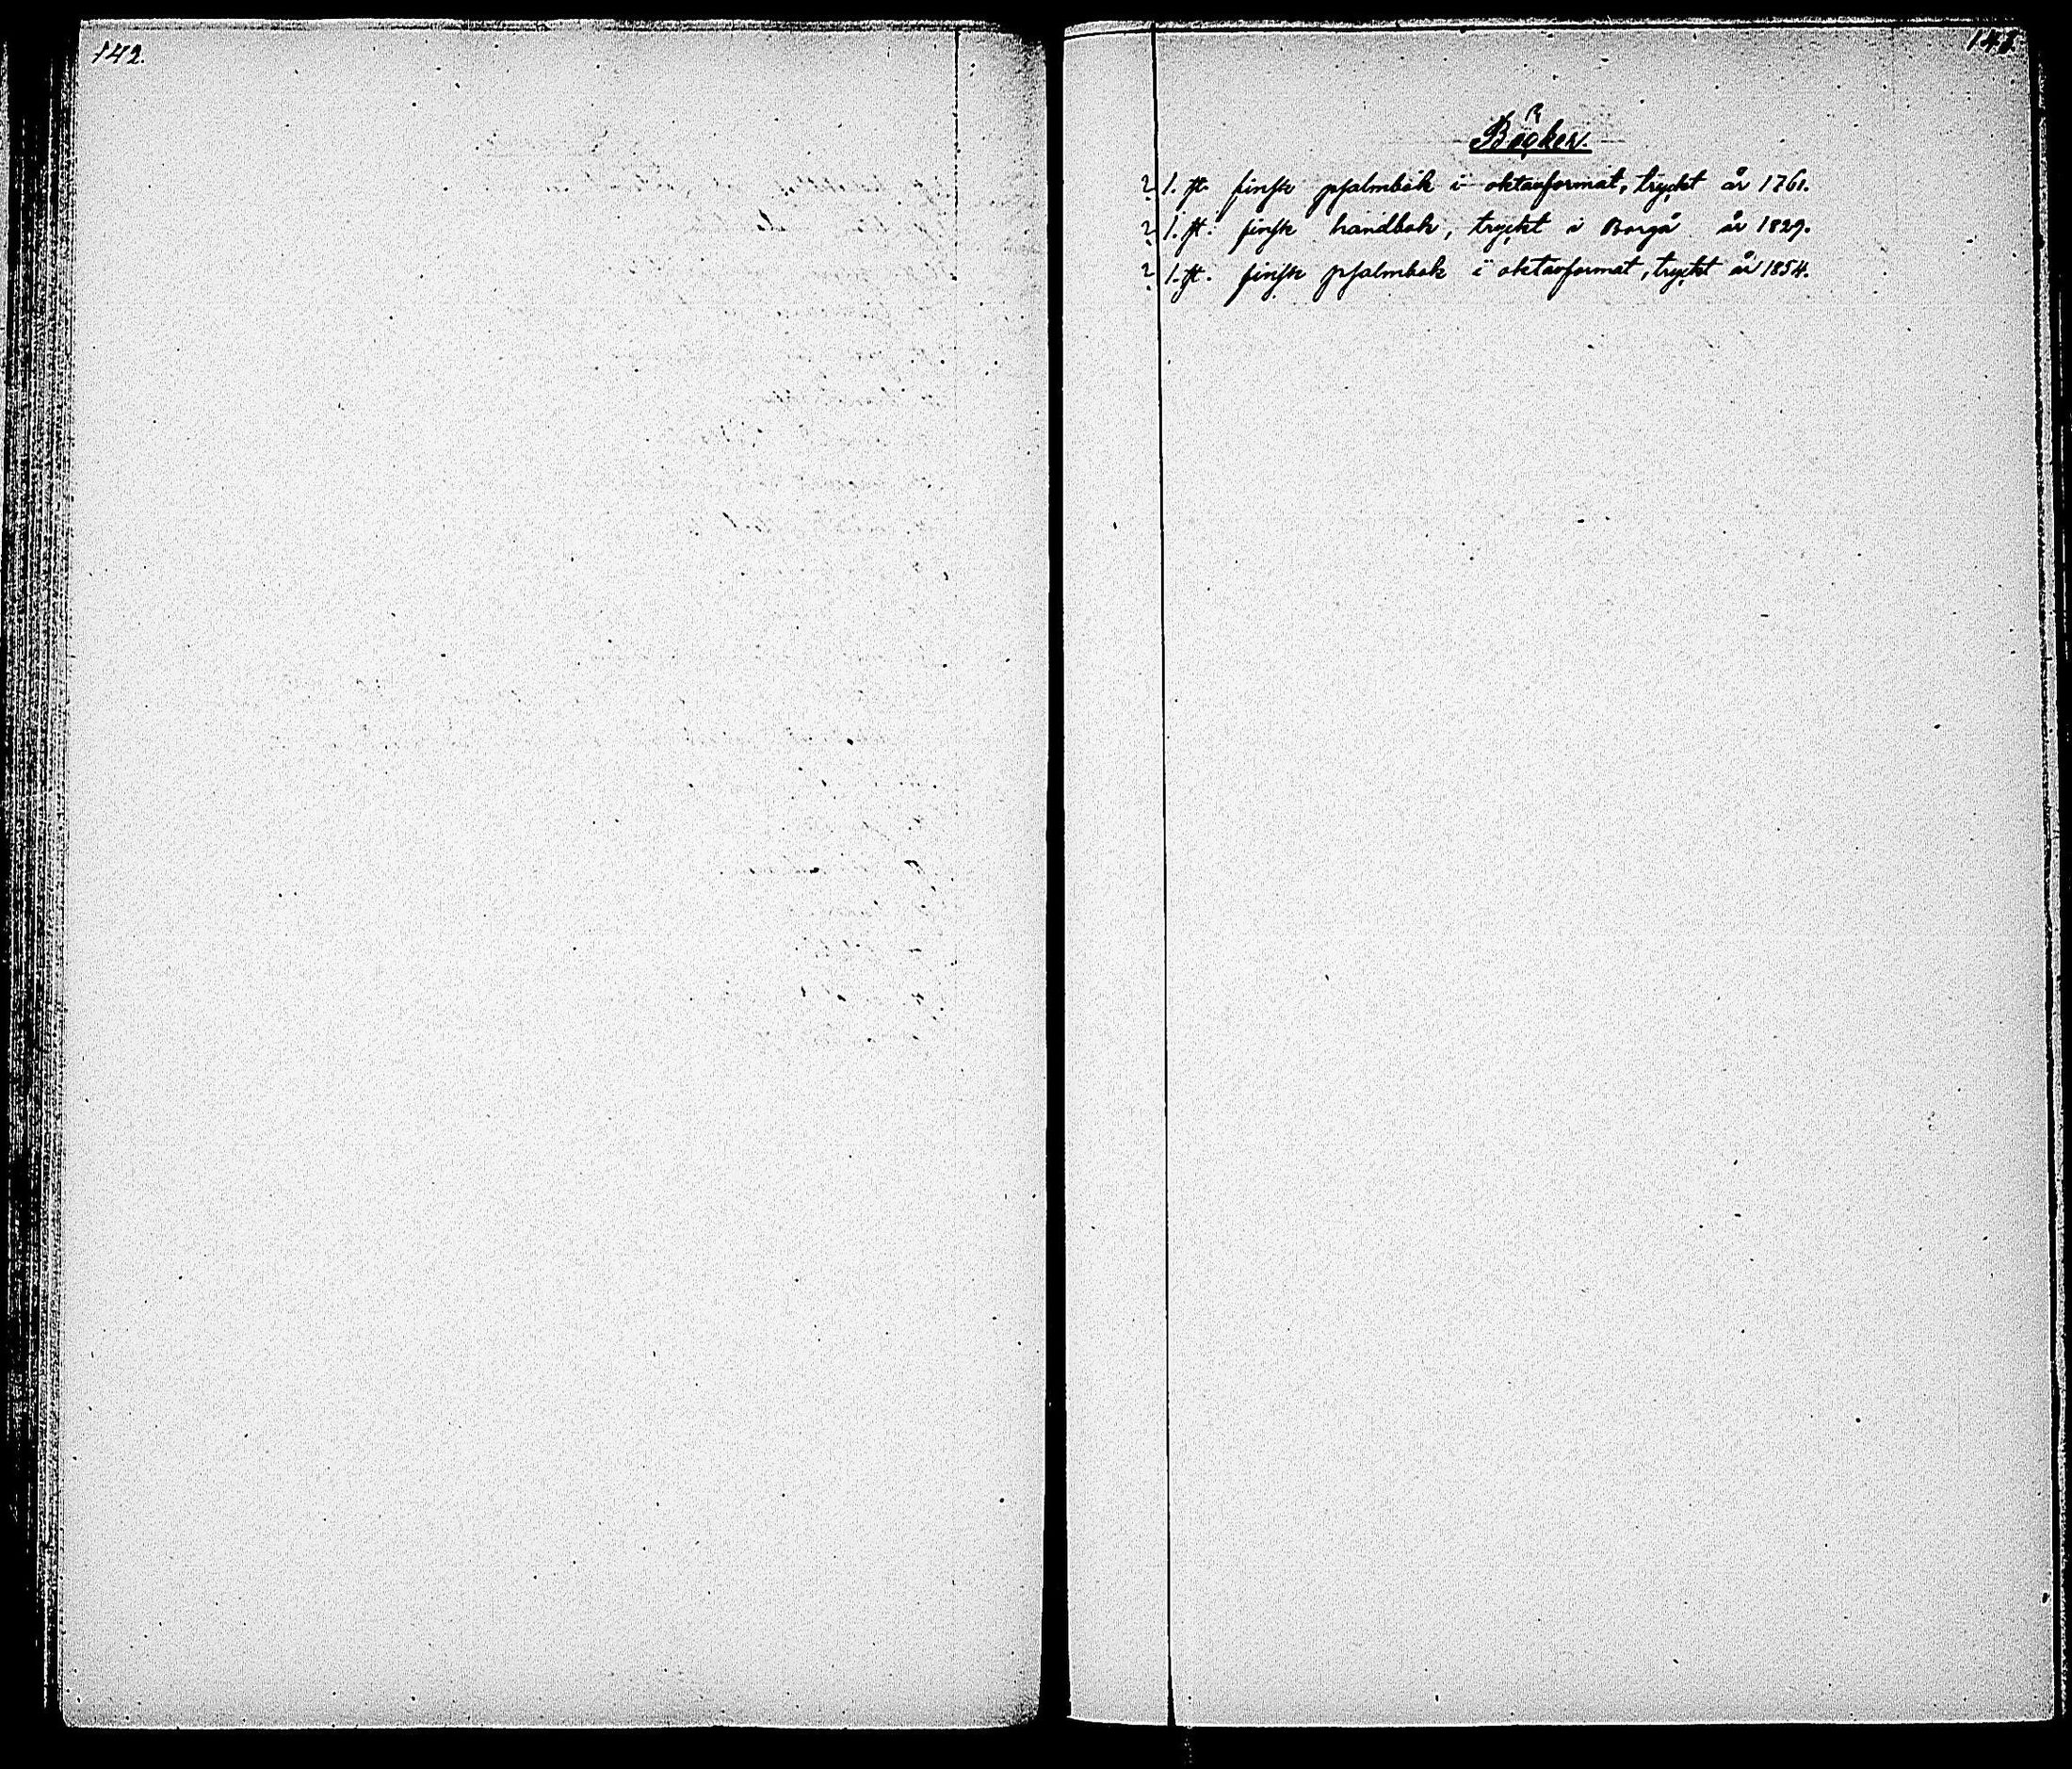 142.
143.
Böcker.
? 1. st. finsk psalmbok i oktavformat, tryckt år 1761.
? 1. st. finsk handbok, tryckt i Borgå år 1829.
? 1. st. finsk psalmbok i oktavformat, tryckt år 1854.